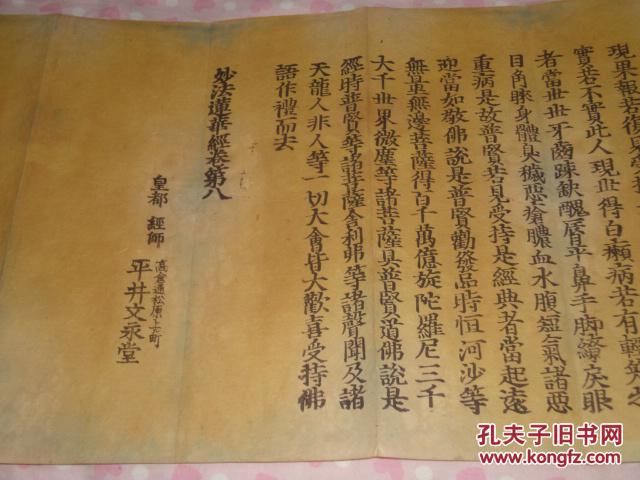 現果報若復見
實若不實此人現世得白癩病若有輕笑之
者當世世牙齒踈缺醜脣平鼻手脚繚戾眼
目角睞身體臭穢惡瘡膿血水腹短氣諸惡
重病是故普賢若見受持是經典者當起遠
迎當如敬佛說是普賢勸發品時恒河沙等
無量無邊菩薩得百千萬億旋陀羅尼三千
大千世界微塵等諸菩薩具普賢道佛說是
經時普賢等諸菩薩舍利弗等諸聲聞及諸
天龍人非人等一切大會皆大歡喜受持佛
語作禮而去
妙法蓮華經卷第八
皇都 經師
高倉通松原上ル町
平井文永堂
孔夫子旧书网
www.kongfz.com